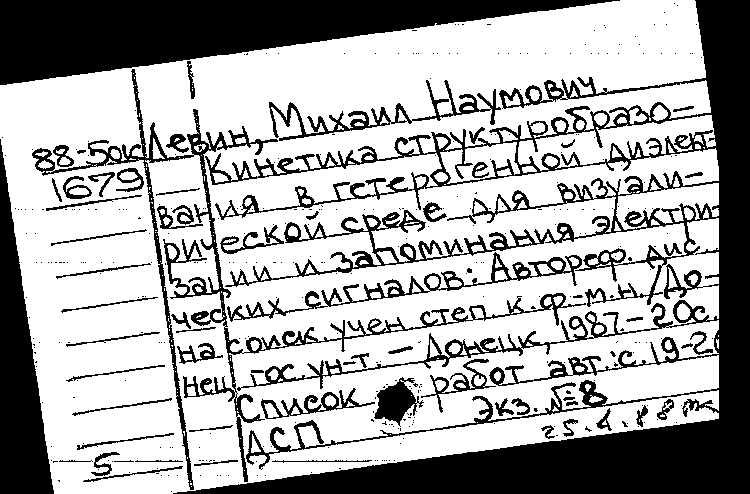 Левин, Михаил Наумович.
88-5ок
1679
Кинетика структурообразо-
вания в гетерогенной диэлект-
рической среде для визуали-
зации и запоминания электри-
ческих сигналов: Автореф. дис.
на соиск. учен степ. к.ф.-м.н. /До-
нец. гос. ун-т. – Донецк, 1987. – 20с.
Список работ авт.: с. 19-20
ДСП. Экз. №8
25.4.88
5